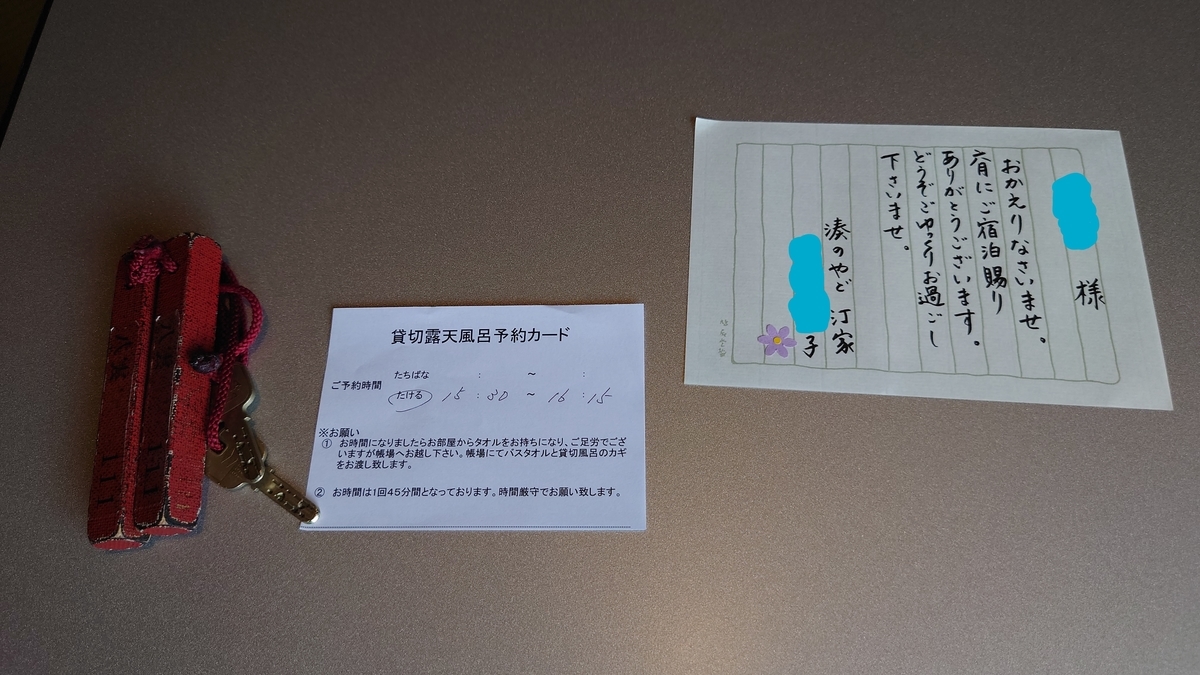 貸切露天風呂予約カード
ご予約時間
たちばな : ～ :
たける 15:30 ～ 16:15
※お願い
① お時間になりましたらお部屋からタオルをお持ちになり、ご足労でござ
いますが帳場へお越し下さい。帳場にてバスタオルと貸切風呂のカギ
をお渡し致します。
② お時間は1回45分間となっております。時間厳守でお願い致します。
様
おかえりなさいませ。
にご宿泊賜り
ありがとうございます。
どうぞごゆっくりお過ごし
下さいませ。
湊のやど 汀家
子